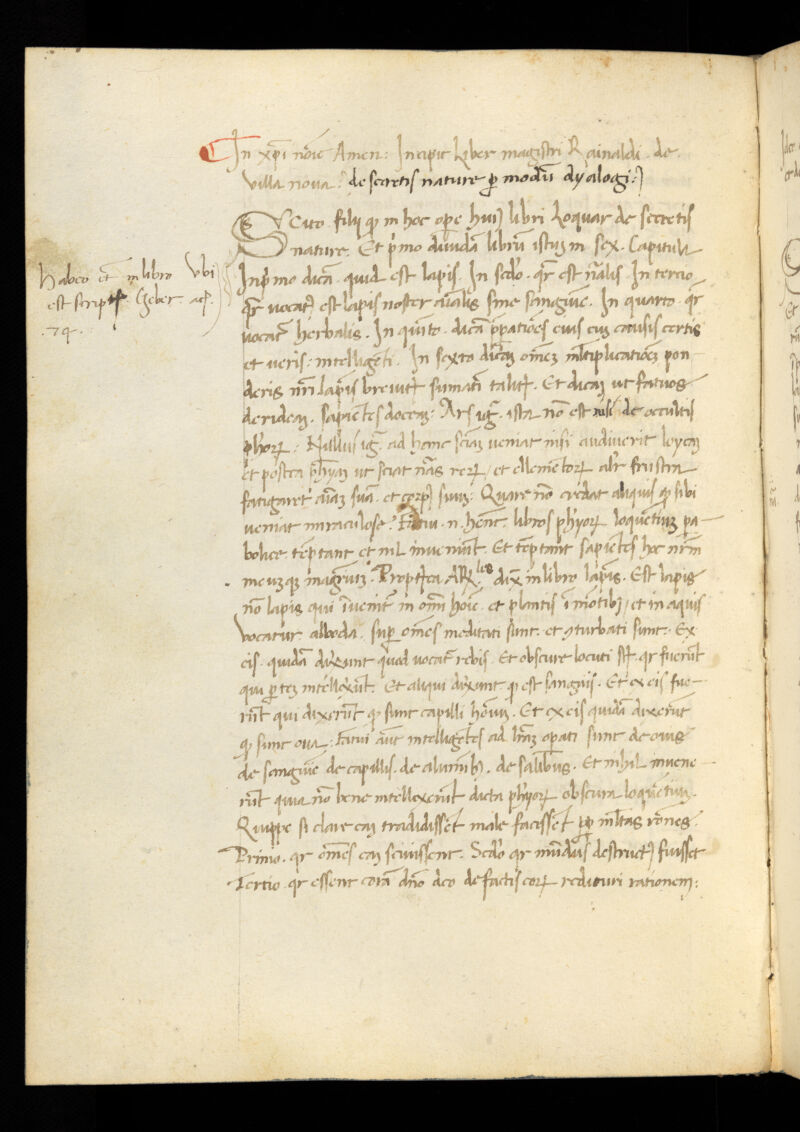 In xp̃i nõie Amen: Incipit Liber magistri Rainaldi de
villa nova: de secretis nature p̱ modũ dyalogi:
SCito fili ꝙ in hoc oꝑe huiꝰ libri loquar de secretis
nature. Et p̃mo dividã librũ istuꝫ in sex. Capitula
Inp̃mo dicã. quid est lapis. In scďo. qr̃ est nãlis. In tercio
qr̃ vocat᷑ est lapis noster aĩalis sine sanguine. In quarto qr̃
vocat᷑ herbalis. In quinto. dicã p̃patiões eius cuꝫ causis certis
et veris: intelligẽti. In sexto dicaꝫ omẽꝫ mĺtiplicatiõeꝫ pon
deris nr̃i lapis brevit᷑ sumati talit᷑. Et dicaꝫ ut fatuos
derideaꝫ. sapiẽtes doceaꝫ: Ars ig᷑. ista nõ est nisi de occultis
ph̃oꝝ: Nullus ig᷑ ad hanc sciaꝫ veniat nisi audiverit loycaꝫ
et postea ph̃yaꝫ ut sciat nãs reꝝ / et ellementoꝝ alr̃ frustra
fatigaret aĩaꝫ suã. et corpꝰ suuꝫ: Quare nõ credat aliquis ꝙ sibi
veniat miraculose: Fatui .n. hẽnt. libros ph̃yoꝝ loquẽtiuꝫ pa
bolice tẽptant et nil inveniũt. Et tẽptant sapiẽtes hoc nr̃m
meuꝫqꝫ magriuꝫ. Propt᷑ea AR.les dix̃ in libro lapis. Est lapis
nõ lapis qui ĩvenit᷑ in om̃i hoĩe et plantis ĩ mõtibꝰ / et in aquis
Vocatur alboda. suꝑ omẽs meditati sunt. et ꝯturbati sunt. Ex
eis. quidã dixerunt quod vocat᷑ rebis. Et obscure locuti sũt qr fuerũt
qui ꝑ teꝫ intellexerũt. Et aliqui dixerunt ꝙ est sanguis. Et ex eis fue
rũt qui dixerũt ꝙ sunt capilli hoĩuꝫ. Et ex eis quidã dixerũt
ꝙ sunt ova: fatui aũt intelligẽtes ad lr̃aꝫ oꝑati sunt de ovis
de sanguĩe de capillis. de aluminibꝰ. de salibus. Et nihil invene
rũt quia nõ bene intellexerũt dicta ph̃yoꝝ obscura loquẽtiuꝫ.
Quippe si clare eaꝫ tradidissẽt male fecissẽt pp̱ mĺtas rõnes.
Primo. qr omẽs eaꝫ scivissent. Scďo qr mũdus destructꝰ fuisset
Tertio qr essent corã dño deo de factis eoꝝ redituri rationem:
Habeo etiã in libro Ubi
est script᷑ Geber
.74.